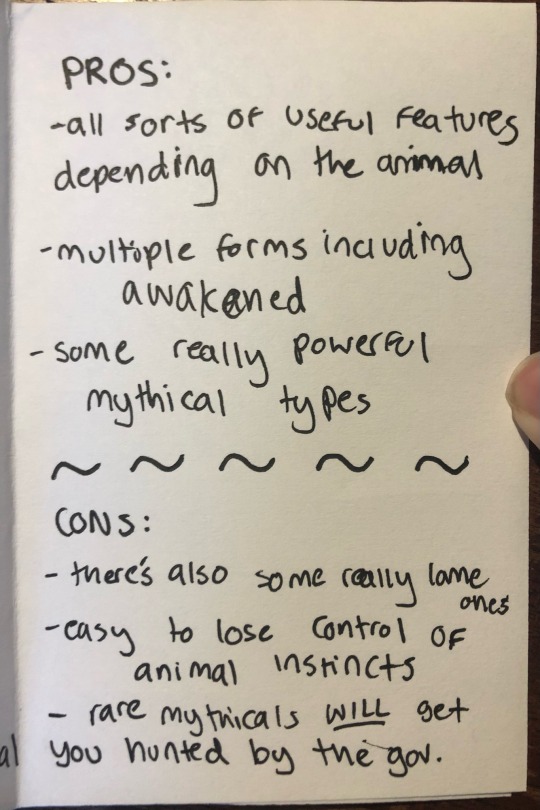 PROS:
-all sorts of useful features
depending on the animal
-multiple forms including
awakened
-some really powerful
mythical types
~ ~ ~ ~ ~
CONS:
- there's also some really lame
ones
-easy to lose control of
animal instincts
- rare mythicals WILL get
you hunted by the gov.
al